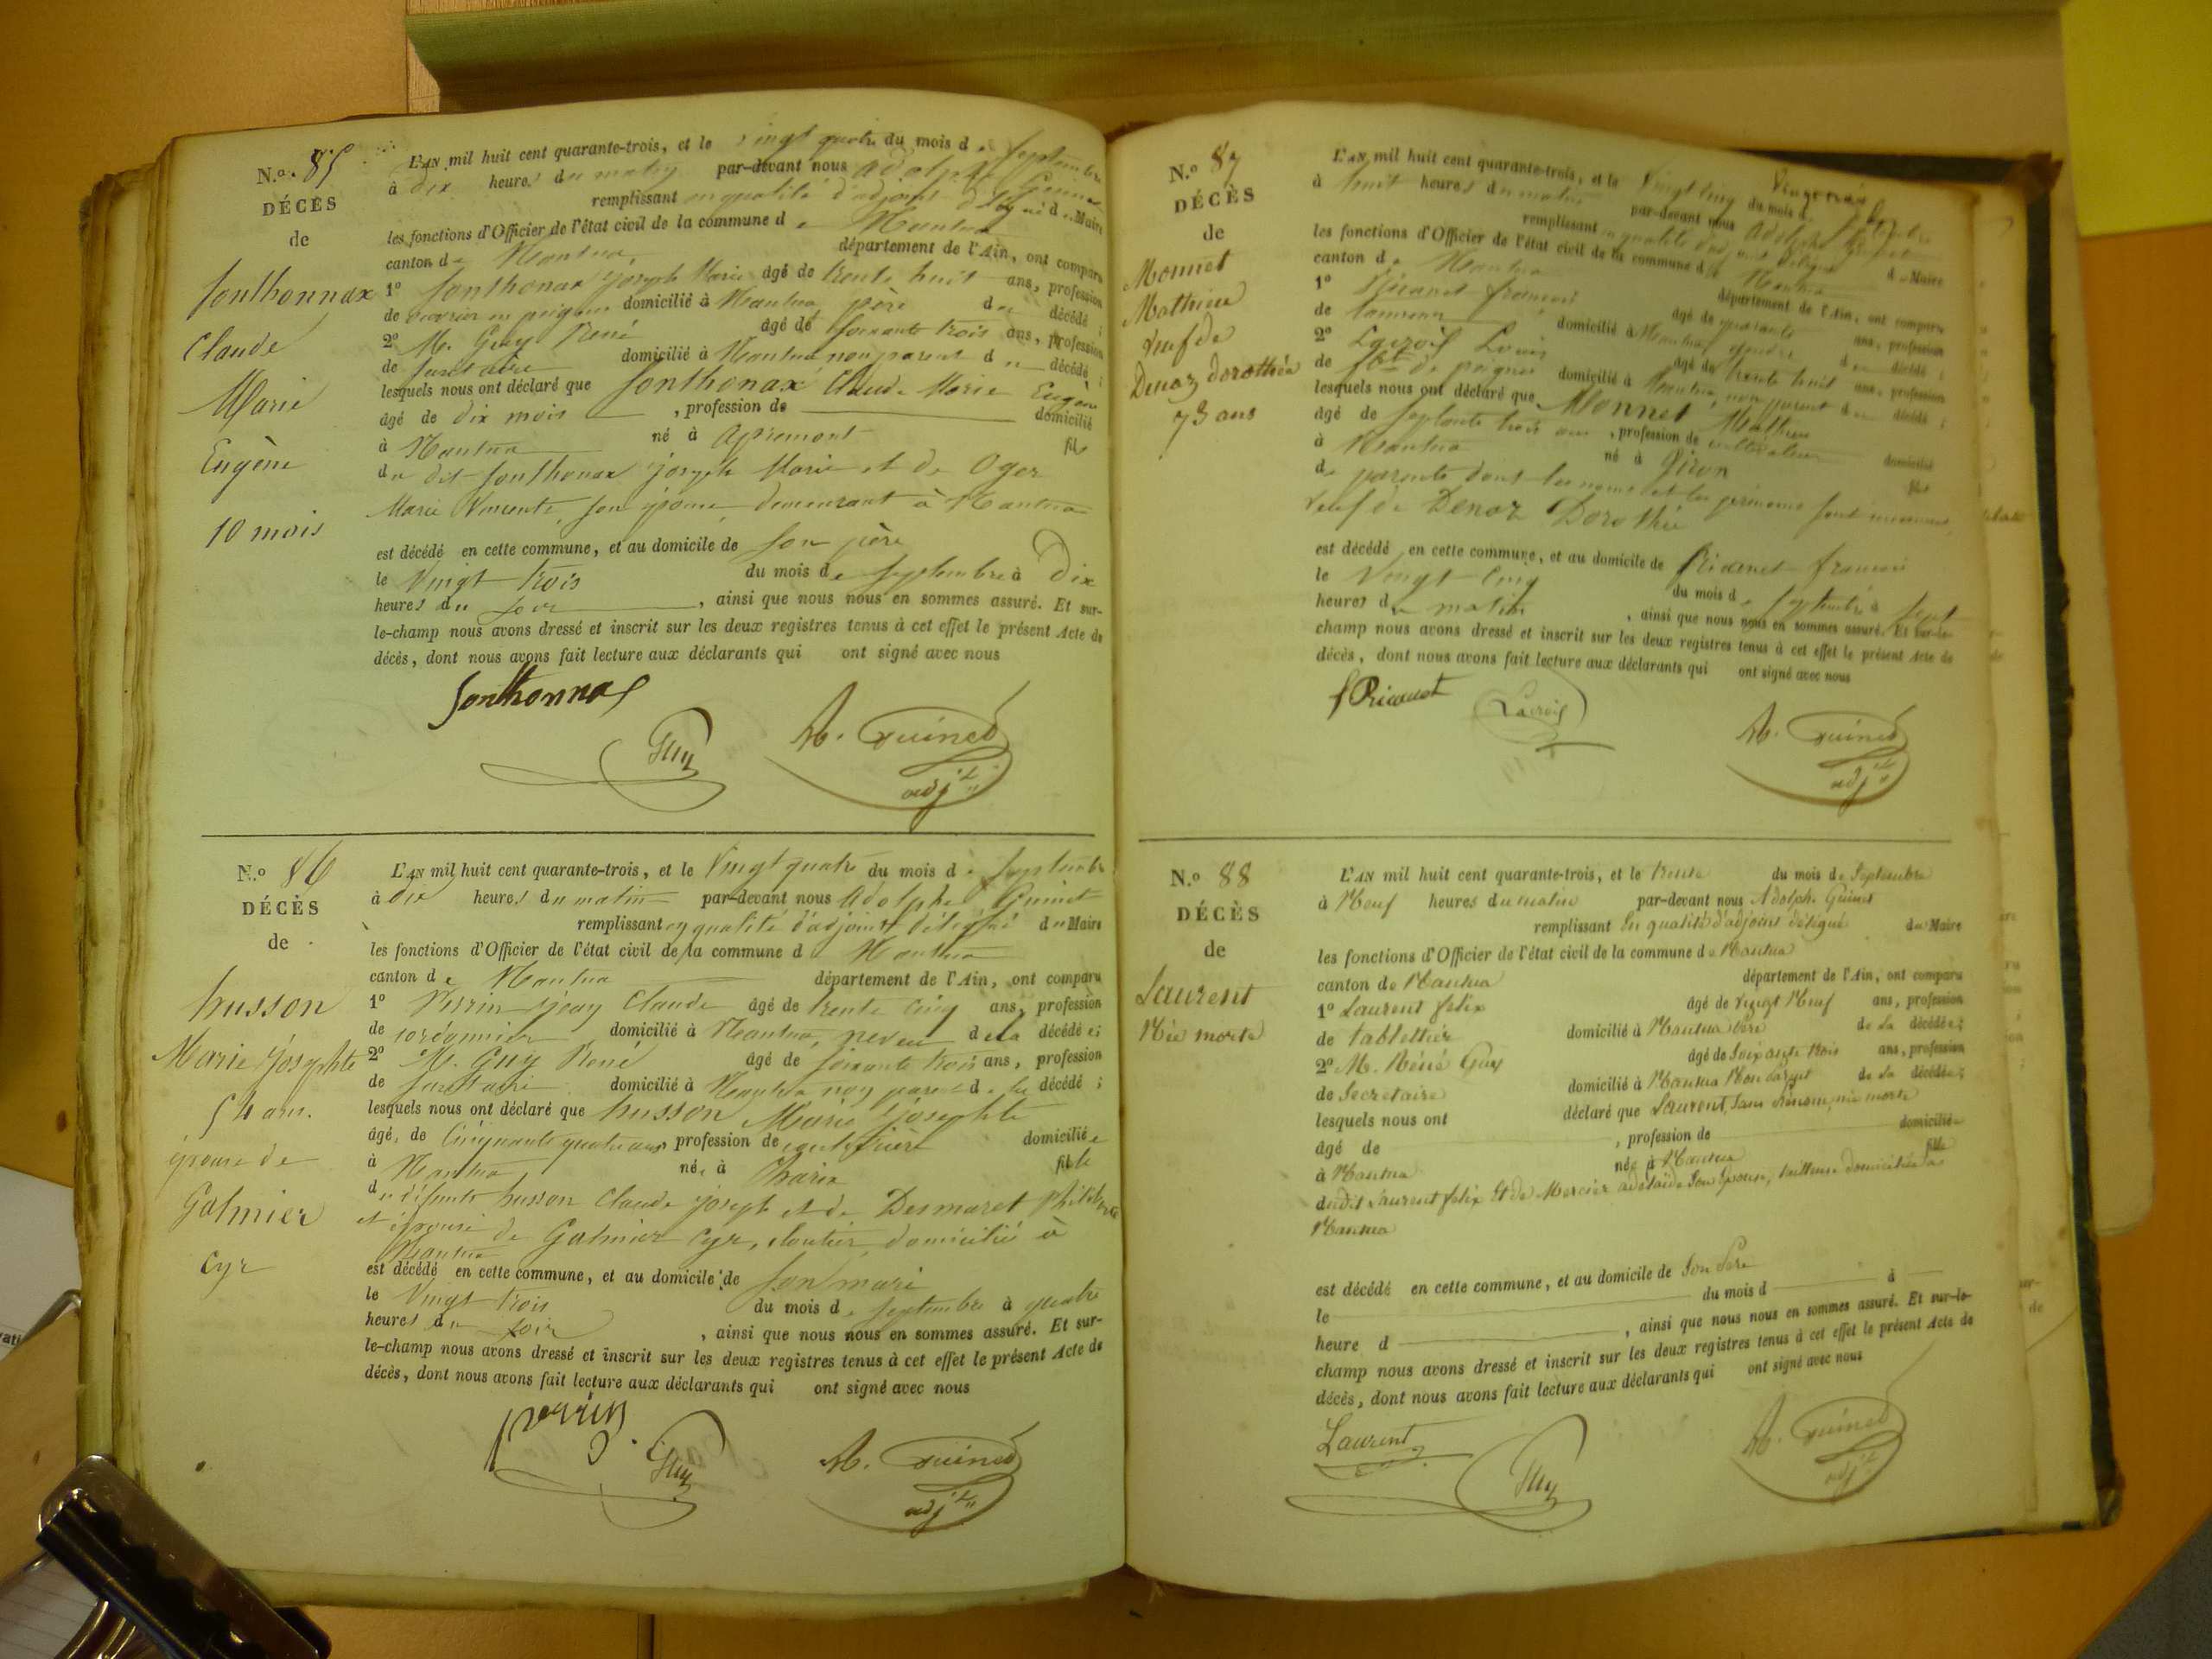 N.º 85
DÉCÈS
de
Sonthonnax
Claude
Marie
Eugène
10 mois
L'AN mil huit cent quarante-trois, et le vingt quatre du mois de Septembre
à dix heures du matin par-devant nous Adolphe Guinet
remplissant en qualité d'adjoint délégué du Maire
les fonctions d'Officier de l'état civil de la commune de Nantua
canton de Nantua département de l'Ain, ont comparu
1º Sonthonax Joseph Marie âgé de trente huit ans, profession
de ouvrier en peignes domicilié à Nantua père du décédé;
2º M. Guy René âgé de soixante trois ans, profession
de secrétaire domicilié à Nantua non parent du décédé;
lesquels nous ont déclaré que Sonthonax Claude Marie Eugène
âgé de dix mois, profession de domicilié
à Nantua né à Apremont fils
du dit Sonthonax Joseph Marie et de Oger
Marie Vincente, son épouse demeurant à Nantua
est décédé en cette commune, et au domicile de son père
le Vingt trois du mois de septembre à Dix
heures du soir, ainsi que nous nous en sommes assuré. Et sur-
le-champ nous avons dressé et inscrit sur les deux registres tenus à cet effet le présent Acte de
décès, dont nous avons fait lecture aux déclarants qui ont signé avec nous
Sonthonnax
Guy
A. Guinet
adj.t
N.º 86
DÉCÈS
de
husson
Marie Josephte
54 ans.
épouse de
Galmier
Cyr
L'AN mil huit cent quarante-trois, et le Vingt quatre du mois de Septembre
à dix heures du matin par-devant nous Adolphe Guinet
remplissant en qualité d'adjoint délégué du Maire
les fonctions d'Officier de l'état civil de la commune de Nantua
canton de Nantua département de l'Ain, ont comparu
1º Perrin Jean Claude âgé de trente cinq ans, profession
de cordonnier domicilié à Nantua, neveu de la décédée;
2º M. Guy René âgé de soixante trois ans, profession
de secrétaire domicilié à Nantua non parent de la décédé;
lesquels nous ont déclaré que husson Marie Josephte
âgé, de Cinquante quatre ans profession de couturière domiciliée
à Nantua, née à Charix fille
du défunts husson Claude Joseph et de Desmaret Philiberte
et épouse de Galmier Cyr, cloutier, domicilié à
Nantua
est décédé en cette commune, et au domicile de son mari
le Vingt trois du mois de septembre à quatre
heures du soir, ainsi que nous nous en sommes assuré. Et sur-
le-champ nous avons dressé et inscrit sur les deux registres tenus à cet effet le présent Acte de
décès, dont nous avons fait lecture aux déclarants qui ont signé avec nous
perrin
Guy
A. Guinet
adj.t
N.º 87
DÉCÈS
de
Monnet
Mathieu
veuf de
Denaz dorothée
73 ans
L'AN mil huit cent quarante-trois, et le Vingt cinq du mois de Septembre
à huit heures du matin par-devant nous Adolphe Guinet
remplissant en qualité d'adjoint délégué du Maire
les fonctions d'Officier de l'état civil de la commune de Nantua
canton de Nantua département de l'Ain, ont comparu
1º françois âgé de quarante ans, profession
de tanneur domicilié à Nantua gendre du décédé;
2º Lacroix Louis âgé de trente huit ans, profession
de fb.t de peignes domicilié à Nantua, non parent du décédé;
lesquels nous ont déclaré que Monnet Mathieu
âgé de septante trois ans, profession de cultivateur domicilié
à Nantua né à Giron fils
de parents dont les noms et les prénoms sont inconnus
veuf de Denaz Dorothée
est décédé en cette commune, et au domicile de françois
le Vingt cinq du mois de septembre à sept
heures du matin, ainsi que nous nous en sommes assuré. Et sur-le-
champ nous avons dressé et inscrit sur les deux registres tenus à cet effet le présent Acte de
décès, dont nous avons fait lecture aux déclarants qui ont signé avec nous
Lacroix
A. Guinet
adj.t
N.º 88
DÉCÈS
de
Laurent
Née morte
L'AN mil huit cent quarante-trois, et le trente du mois de Septembre
à Neuf heures du matin par-devant nous Adolph. Guinet
remplissant En qualité d'adjoint délégué du Maire
les fonctions d'Officier de l'état civil de la commune de Nantua
canton de Nantua département de l'Ain, ont comparu
1º Laurent felix âgé de vingt Neuf ans, profession
de tablettier domicilié à Nantua Père de la décédée;
2º M. Réné Guy âgé de Soixante trois ans, profession
de Secretaire domicilié à Nantua Non parent de la décédée;
lesquels nous ont déclaré que Laurent, sans Prénom, née morte
âgé de, profession de domiciliée
à Nantua née à Nantua fille
dudit Laurent felix Et de Mercier adelaïde Son Epouse, tailleuse domiciliée à
Nantua
est décédé en cette commune, et au domicile de Son Père
le du mois d à
heure d, ainsi que nous nous en sommes assuré. Et sur-le-
champ nous avons dressé et inscrit sur les deux registres tenus à cet effet le présent Acte de
décès, dont nous avons fait lecture aux déclarants qui ont signé avec nous
Laurent
Guy
A. Guinet
adj.t